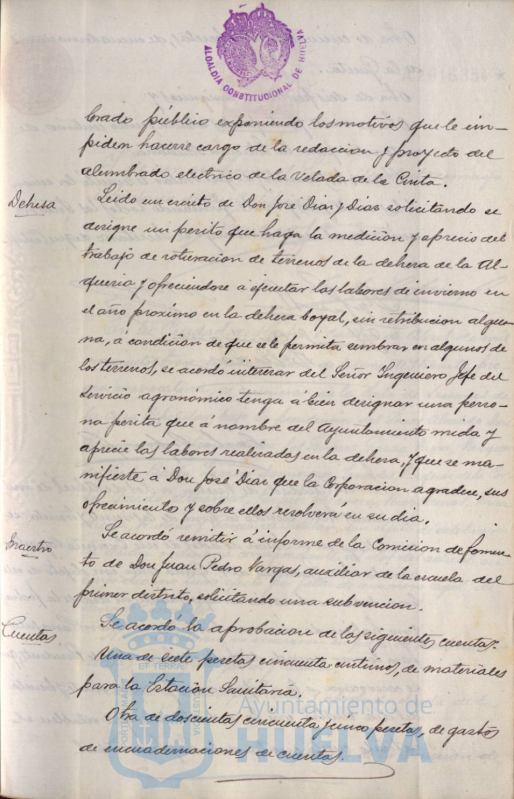 ALCALDIA CONSTITUCIONAL DE HUELVA
brado público exponiendo los motivos que le im-
piden hacerse cargo de la redaccion y proyecto del
alumbrado electrico de la Velada de la Cinta.
Dehesa
Leido un escrito de Don José Diaz y Diaz solicitando se
designe un perito que haga la medicion y aprecio del
trabajo de roturacion de terrenos de la dehesa de la Al-
queria y ofreciendose á ejecutar las labores de invierno en
el año proximo en la dehesa boyal, sin retribucion algu-
na, a condicion de que se le permita sembrar en algunos de
los terrenos, se acordó interesar del Señor Ingeniero Jefe del
Servicio agronómico tenga á bien designar una perso-
na perita que á nombre del Ayuntamiento mida y
aprecie las labores realizadas en la dehesa, y que se ma-
nifieste á Don José Diaz que la Corporacion agradece, sus
ofrecimiento y sobre ellos resolverá en su dia.
Maestro
Se acordó remitir á informe de la Comision de fomen-
to de Don Juan Pedro Vargas, auxiliar de la escuela del
primer distrito, solicitando una subvencion.
Cuentas
Se acordó la aprobacion de las siguientes cuentas.
Una de siete pesetas cincuenta centimos, de materiales
para la Estación Sanitaria.
Otra de doscientas cincuenta y cinco pesetas, de gastos
de encuadernaciones de cuentas.
Ayuntamiento de
HUELVA